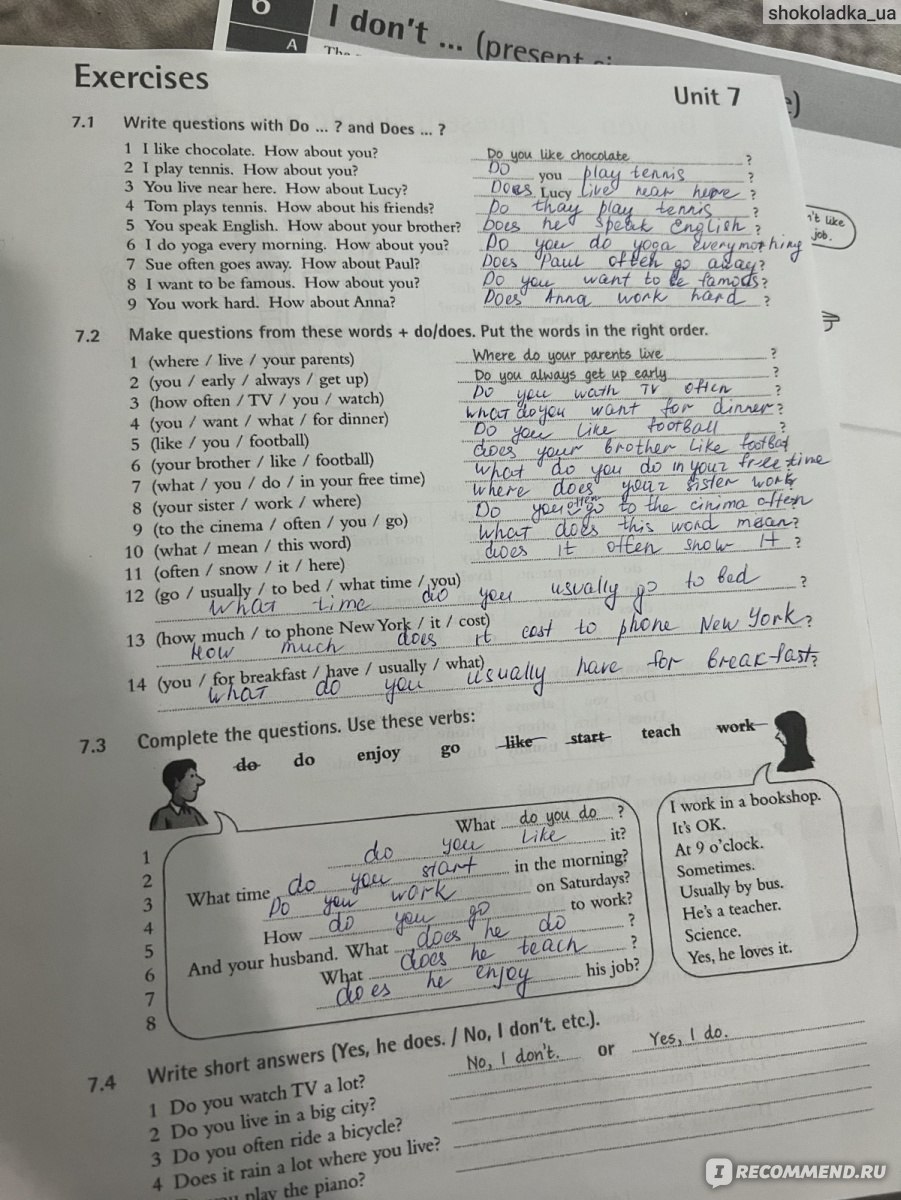 shokoladka_ua
6 I don't ... (present si
A The
Exercises
Unit 7
e)
7.1 Write questions with Do ... ? and Does ... ?
1 I like chocolate. How about you? Do you like chocolate ?
2 I play tennis. How about you? Do you play tennis ?
3 You live near here. How about Lucy? Does Lucy live near here ?
4 Tom plays tennis. How about his friends? Do thay play tennis ?
5 You speak English. How about your brother? Does he speak English ?
6 I do yoga every morning. How about you? Do you do yoga every morning
7 Sue often goes away. How about Paul? Does Paul often go away?
8 I want to be famous. How about you? Do you want to be famous?
9 You work hard. How about Anna? Does Anna work hard ?
n't like
job.
7.2 Make questions from these words + do/does. Put the words in the right order.
1 (where / live / your parents) Where do your parents live ?
2 (you / early / always / get up) Do you always get up early ?
3 (how often / TV / you / watch) Do you wath TV often ?
4 (you / want / what / for dinner) what do you want for dinner?
5 (like / you / football) Do you like football ?
6 (your brother / like / football) does your brother like football
7 (what / you / do / in your free time) what do you do in your free time
8 (your sister / work / where) where does your sister work?
9 (to the cinema / often / you / go) Do you often go to the cinima often
10 (what / mean / this word) what does this word mean?
11 (often / snow / it / here) does it often snow it ?
12 (go / usually / to bed / what time / you)
what time do you usually go to bed ?
13 (how much / to phone New York / it / cost)
How much does it cost to phone New York?
14 (you / for breakfast / have / usually / what)
what do you usually have for breakfast?
7.3 Complete the questions. Use these verbs:
do do enjoy go like start teach work
1 What do you do ?
2 do you like it?
3 What time do you start in the morning?
4 Do you work on Saturdays?
5 How do you go to work?
6 And your husband. What does he do ?
7 What does he teach ?
8 does he enjoy his job?
I work in a bookshop.
It's OK.
At 9 o'clock.
Sometimes.
Usually by bus.
He's a teacher.
Science.
Yes, he loves it.
7.4 Write short answers (Yes, he does. / No, I don't. etc.).
1 Do you watch TV a lot? No, I don't. or Yes, I do.
2 Do you live in a big city?
3 Do you often ride a bicycle?
4 Does it rain a lot where you live?
you play the piano?
IRECOMMEND.RU